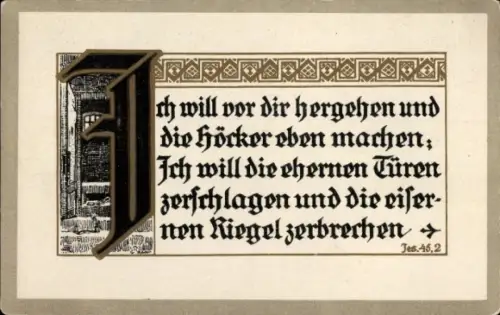 Ich will vor dir hergehen und
die Höcker eben machen;
Ich will die ehernen Türen
zerschlagen und die eiser-
nen Riegel zerbrechen →
Jes. 45, 2